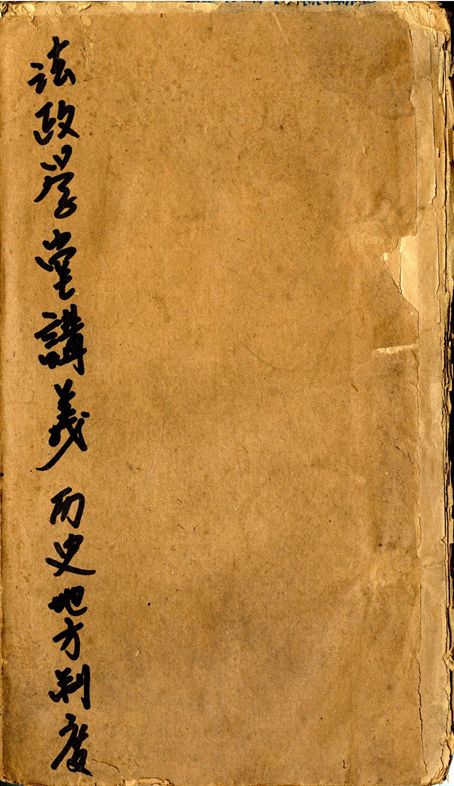 法政学堂講義 历史地方制度